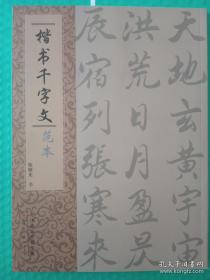 楷书千字文
范本
书
天地玄黄宇宙
洪荒日月盈昃
辰宿列張寒来